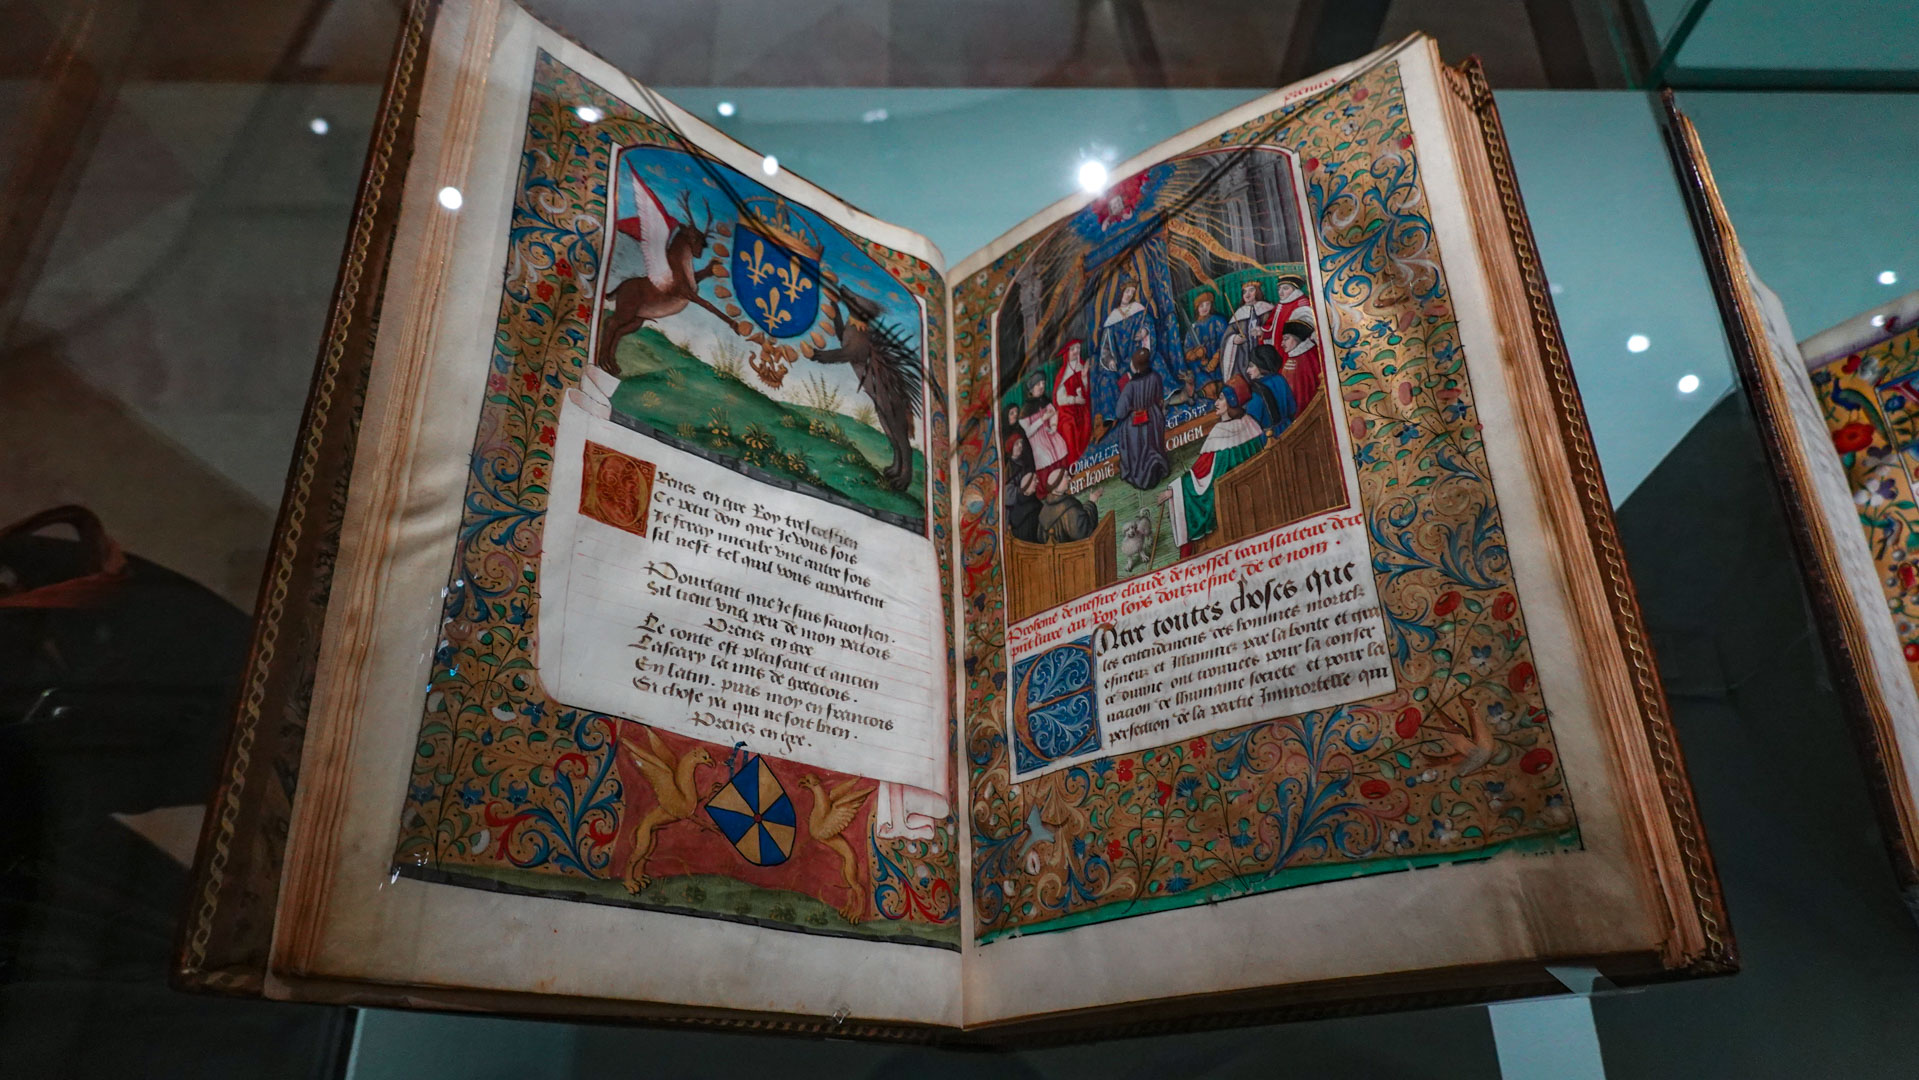 Prenez en gre Roy trescrestien
Ce petit don que Je vous fois
Je feray mieulx une autre fois
sil nest tel quil vous appartient
Pourtant que Je suis savoisien.
Sil tient ung peu de mon patois
Prenez en gre
Le conte est plaisant et ancien
Lascary la mis de gregeois.
En latin. puis moy en francois
Si chose ya qui ne soit bien.
Prenez en gre.
premier
CONEM
Proheme de messire claude de seyssel translateur de ce
livre au Roy loys douziesme de ce nom.
Entre toutes choses que
les entendemens des hommes mortelz
ce divine ont trouuees pour la conser
uacion de lhumaine societe et pour la
perfection de la partie Immortelle qui